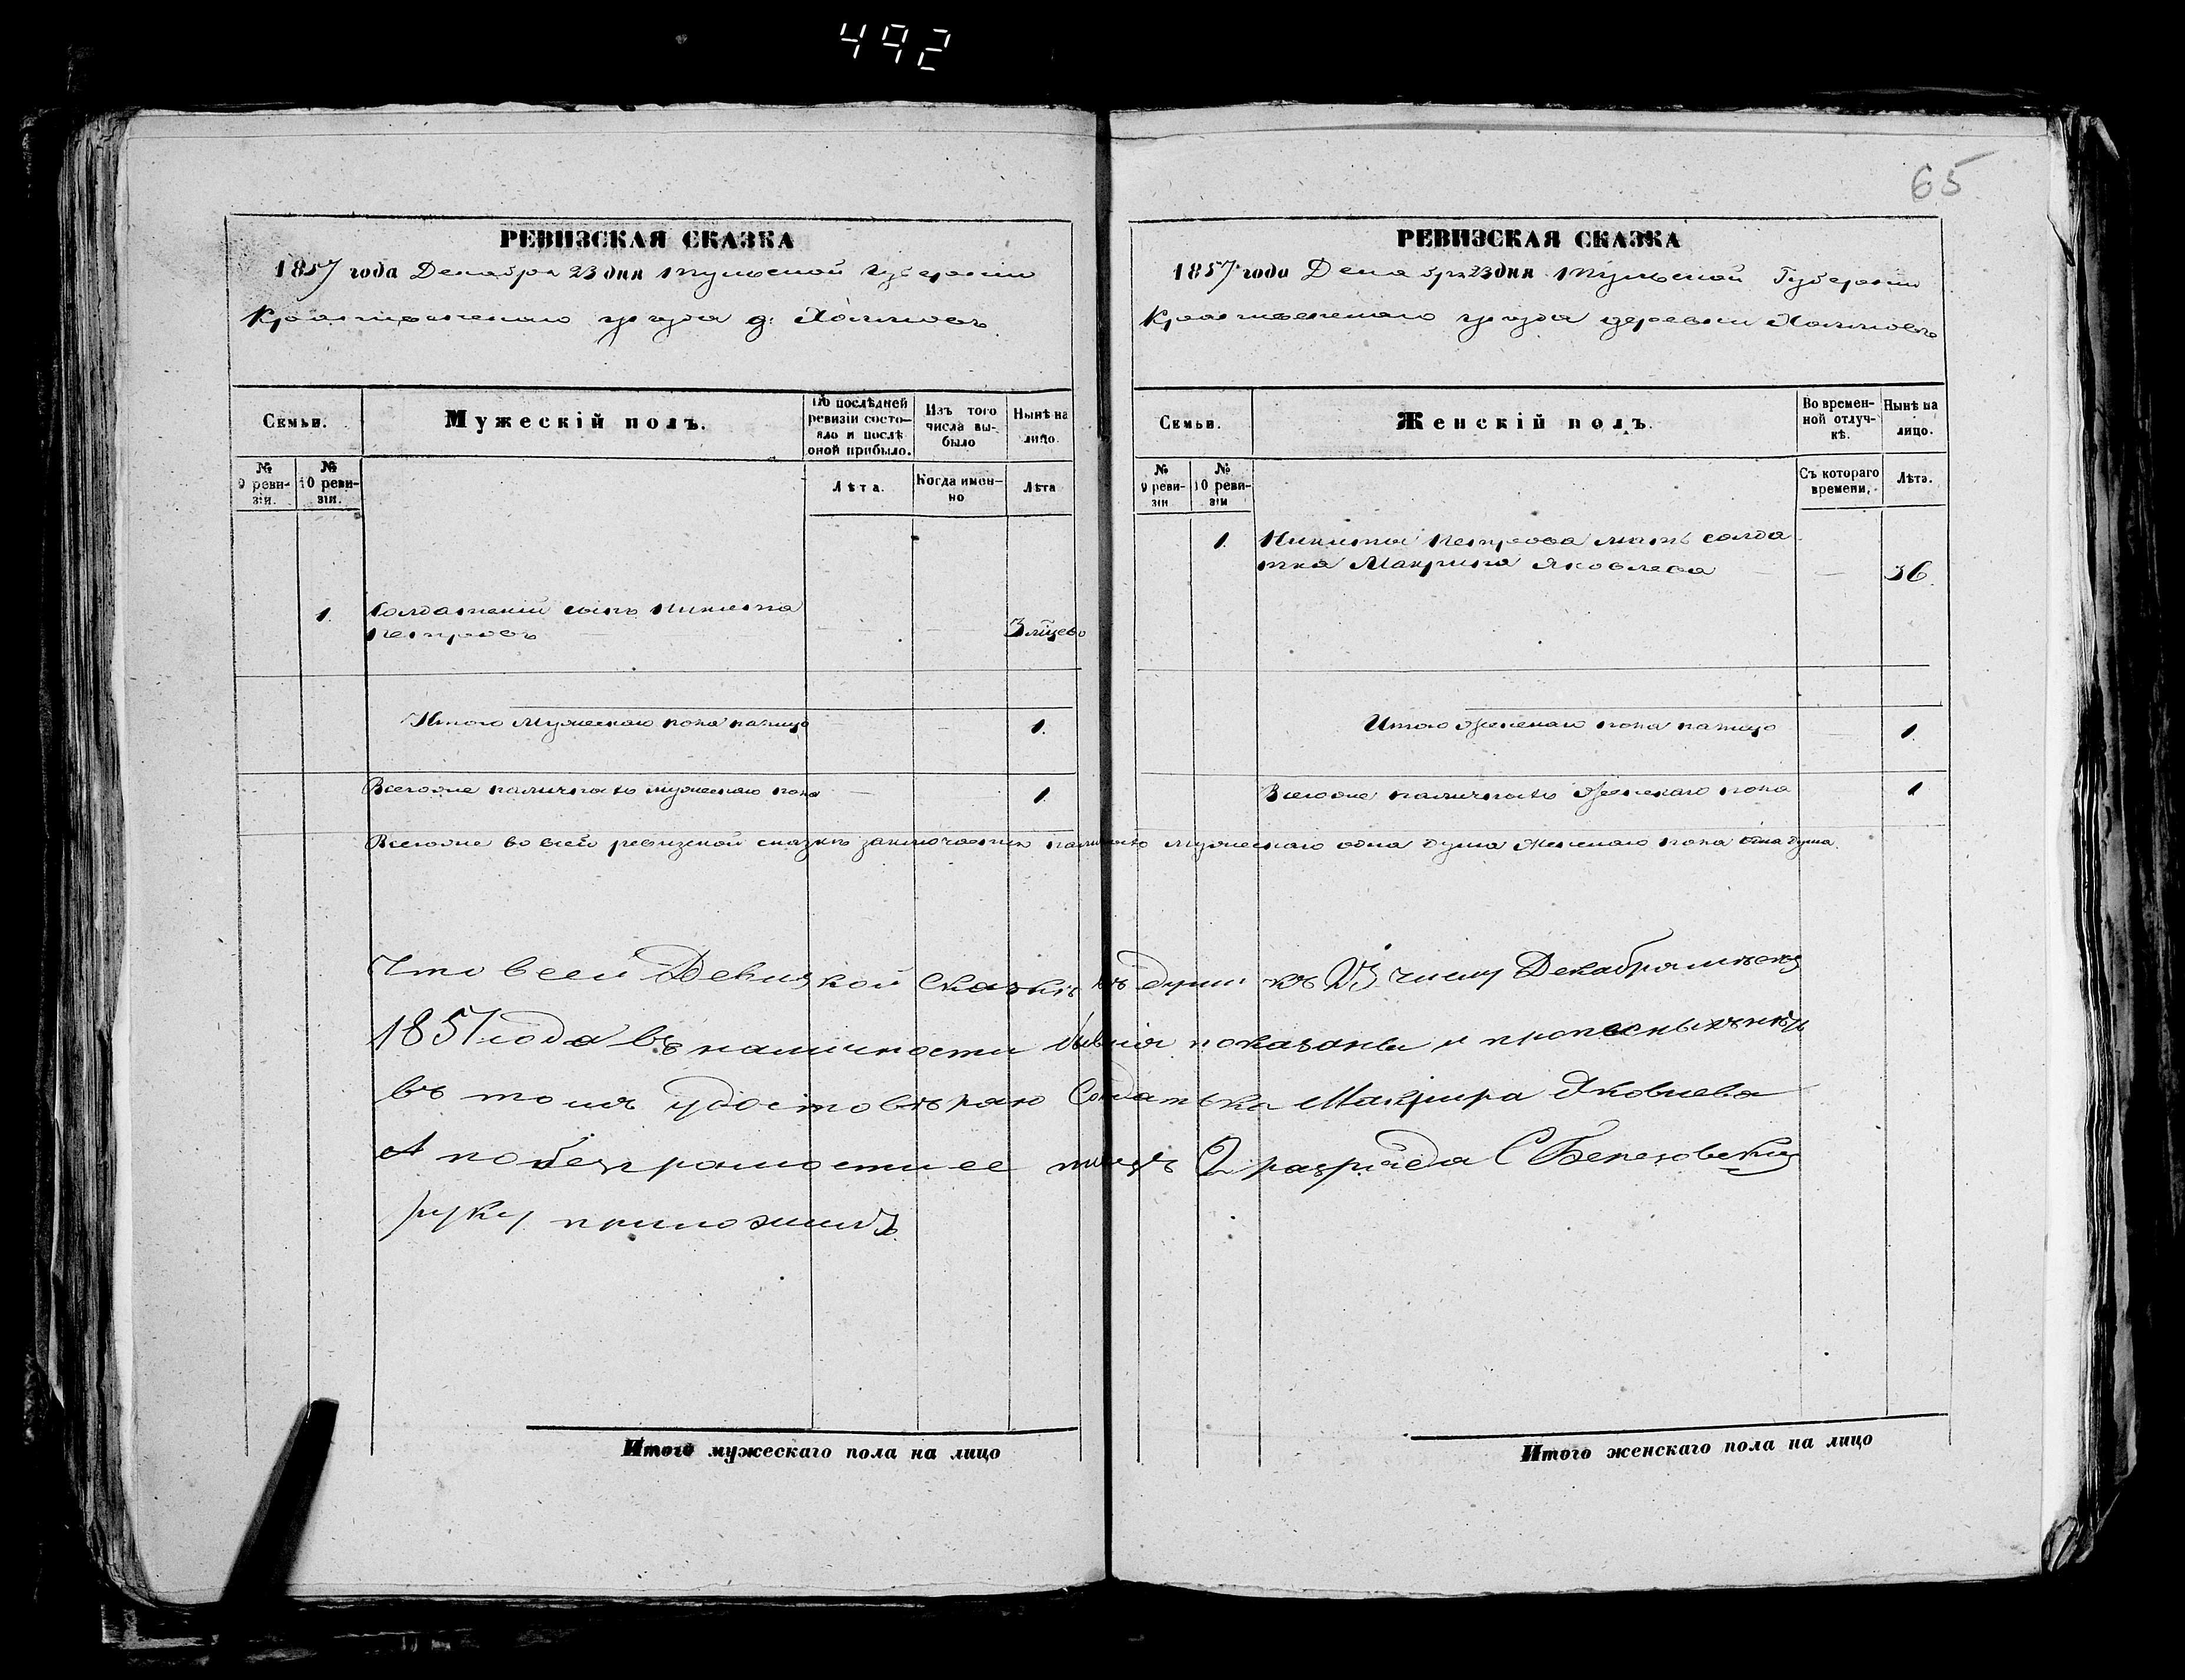 492
65
РЕВИЗСКАЯ СКАЗКА
1857 года Декабря 23 дня Тульской Губернiи
уѣзда д:
Семьи.
Мужескiй полъ.
По послѣдней ревизiи состояло и послѣ оной прибыло.
Изъ того числа выбыло
Нынѣ на лицо.
№ 9 ревизiи.
№ 10 ревизiи.
Лѣта.
Когда именно
Лѣта
1. Солдатскiй сынъ Никита
Петровъ — — — 3
Итого Мужескаго пола налицо — — 1.
Всего же наличность мужескаго пола — 1.
РЕВИЗСКАЯ СКАЗКА
1857 года Декабря 23 дня Тульской Губернiи
уѣзда деревни
Семьи.
Женскiй полъ.
Во временной отлучкѣ.
Нынѣ на лицо.
№ 9 ревизiи
№ 10 ревизiи
Съ котораго времени,
Лѣта.
1. Никиты Петрова мать солда
тка Макрина Яковлева — — 36.
Итого Женскаго пола налицо — 1.
Всего же наличность Женскаго пола 1
Всего же во всей ревизской сказкѣ заключается мужескаго одна душа Женскаго пола одна душа.
Что в сей Ревизкой Сказкѣ души къ 23 числу Декабря
1857 года въ наличности показаны и
въ томъ удостовѣряю Солдатька Яковлева
А по безграмости ее писецъ 2 разряда С
руку приложилъ
Итого мужескаго пола на лицо
Итого женскаго пола на лицо